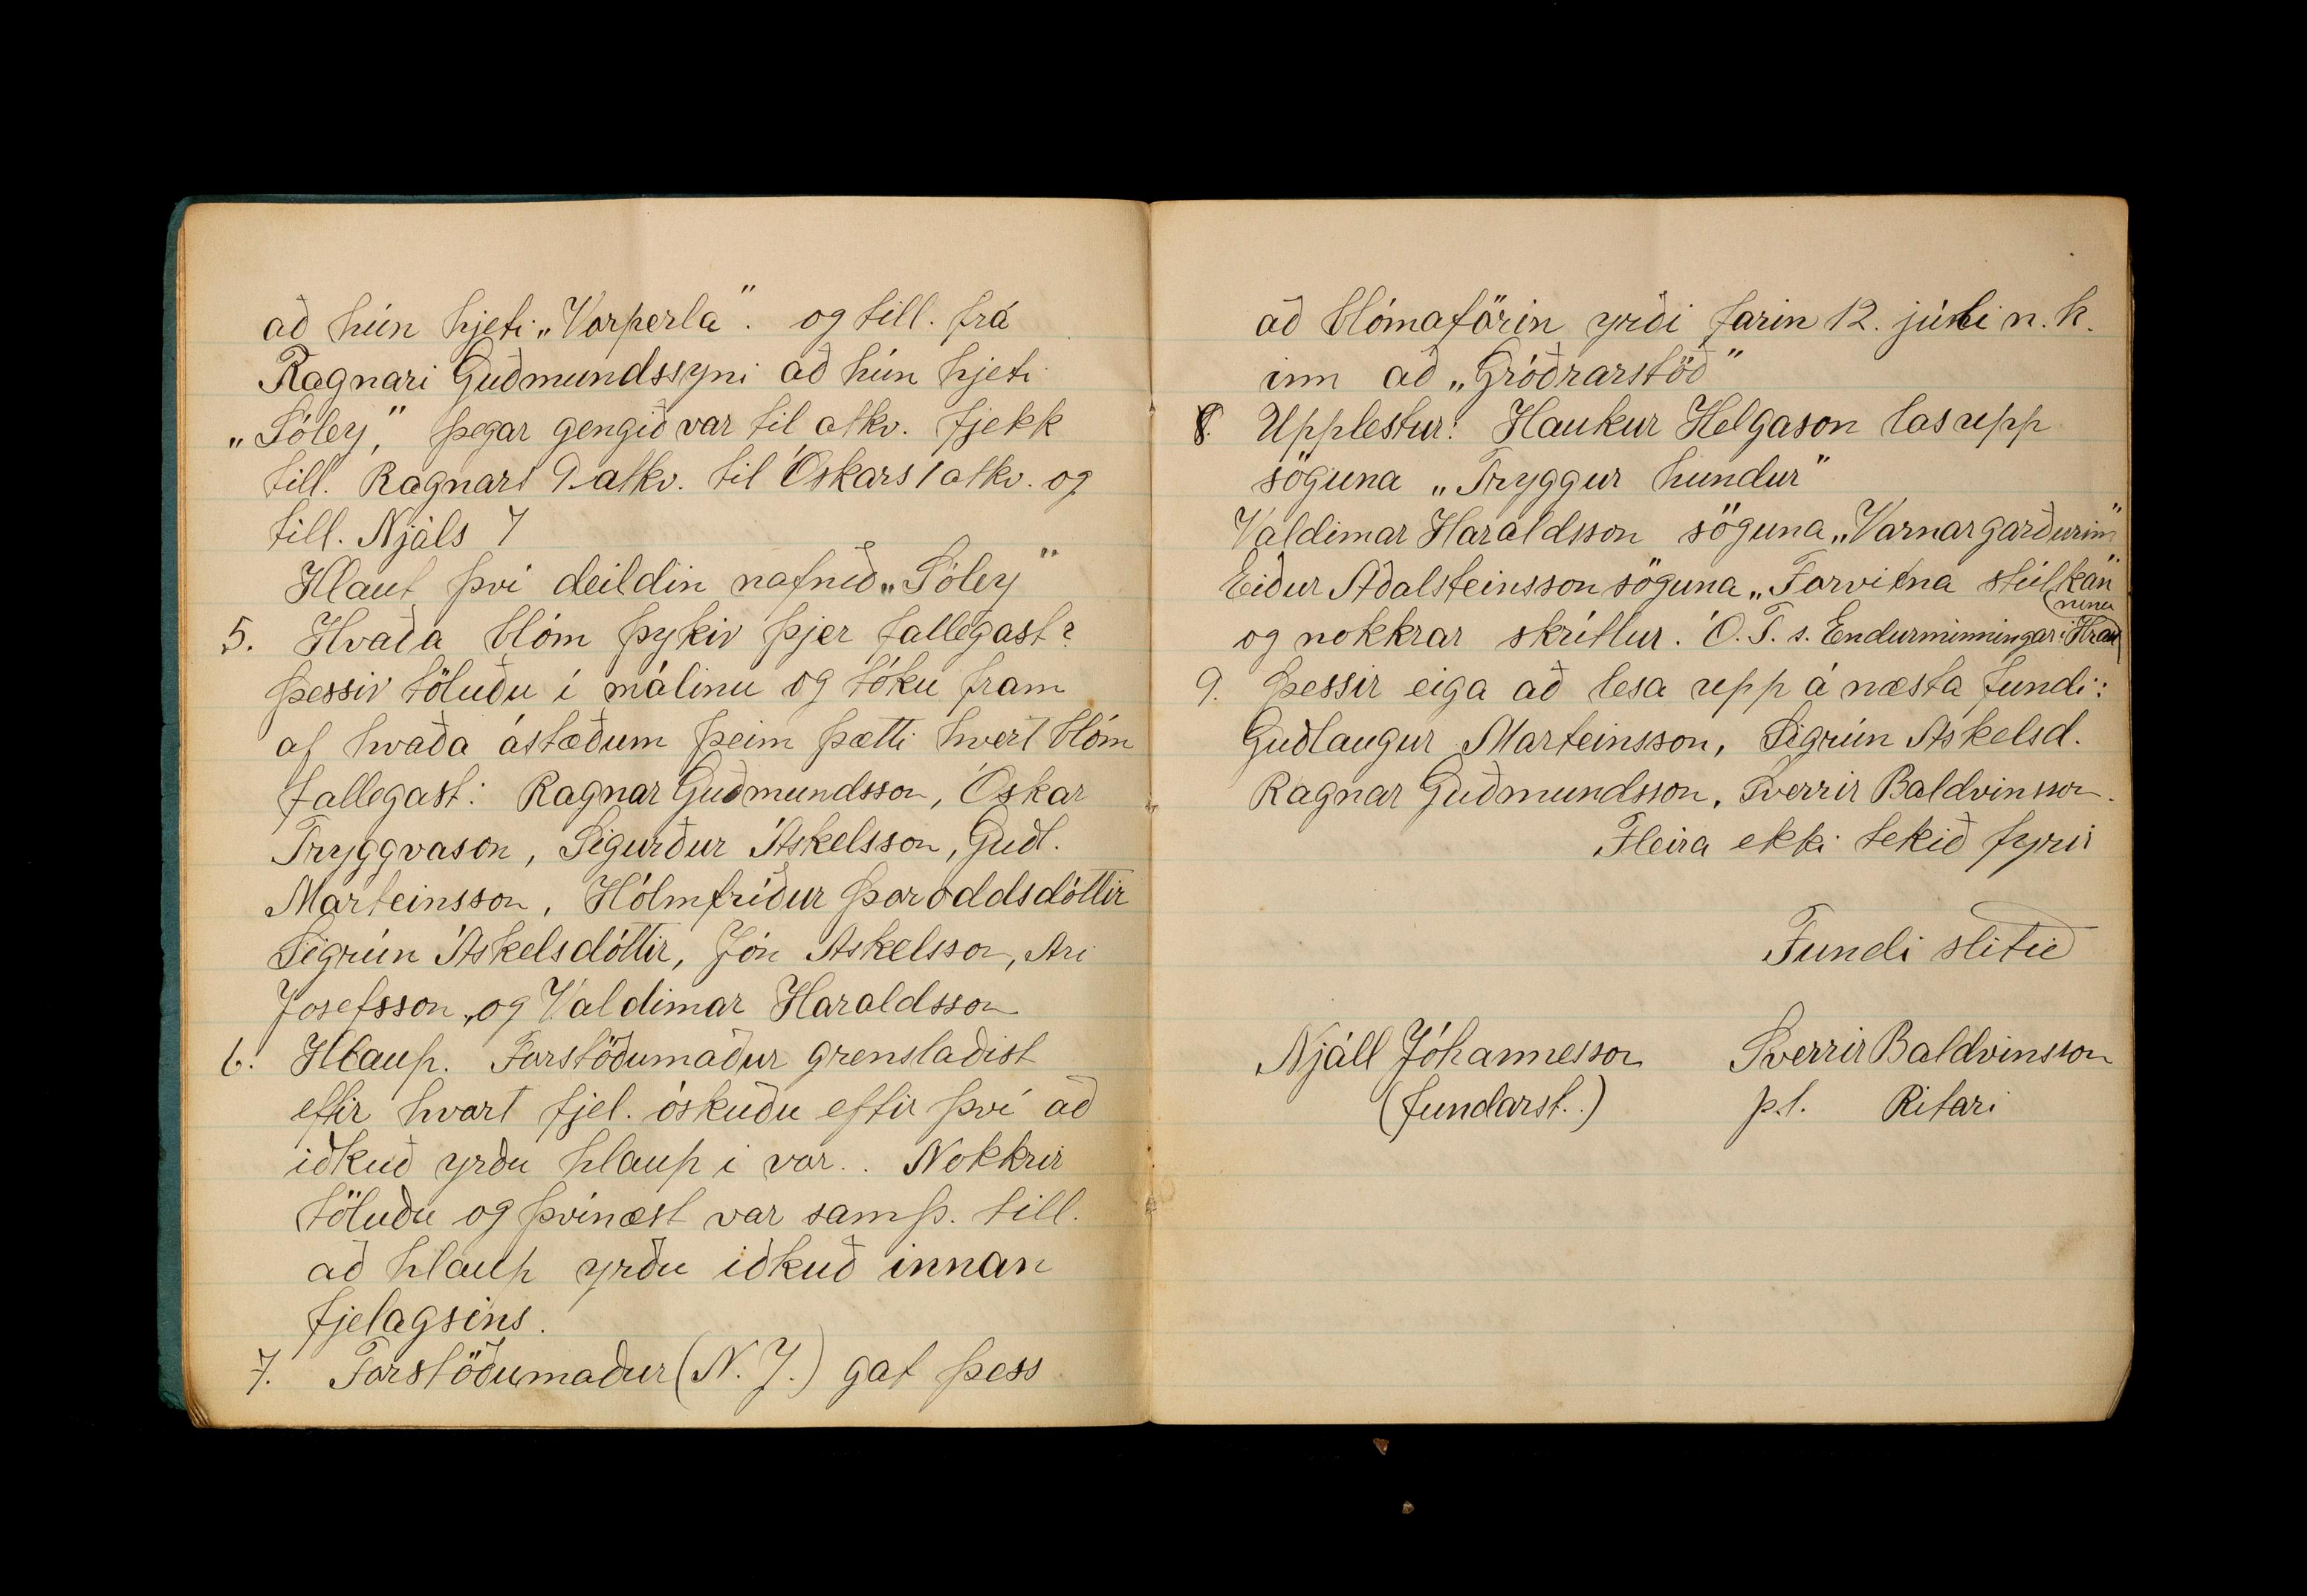 að hún hjeti „Vorperla". og till. frá
Ragnari Guðmundssyni að hún hjeti
„Sóley," þegar gengið var til atkv. fjekk
till. Ragnars 9 atkv. til Óskars 1 atkv. og
till. Njáls 7
Hlaut því deildin nafnið „Sóley"
5. Hvaða blóm þykir þjer fallegast?
Þessir töluðu í málinu og tóku fram
af hvaða ástæðum þeim þætti hvert blóm
fallegast: Ragnar Guðmundsson, Óskar
Tryggvason, Sigurður Áskelsson, Guðl.
Marteinsson, Hólmfríður Þoroddsdóttir
Sigrún Áskelsdóttir, Jón Áskelsson, Ari
Josefsson, og Valdimar Haraldsson
6. Hlaup. Forstöðumaður grenslaðist
eftir hvort fjel. óskuðu eftir því að
iðkuð yrðu hlaup i vor.. Nokkrir
töluðu og þvínæst var samþ. till.
að hlaup yrðu iðkuð innan
fjelagsins.
7. Forstöðumaður (N. J.) gat þess
að blómaförin yrði farin 12. júlí n. k.
inn að „Gróðrarstöð"
8. Upplestur: Haukur Helgason las upp
söguna „Tryggur hundur"
Valdimar Haraldsson söguna „Varnargarðurinn"
Eiður Aðalsteinsson söguna „Forvitna stúlkan"
og nokkrar skrítlur. Ó. T. s. Endurminningar
9. Þessir eiga að lesa upp á næsta fundi:
Guðlaugur Marteinsson, Sigrún Áskelsd.
Ragnar Guðmundsson, Sverrir Baldvinsson.
Fleira ekki tekið fyrir
Fundi slitið
Njáll Jóhannesson Sverrir Baldvinsson
(fundarst.) p.t. Ritari